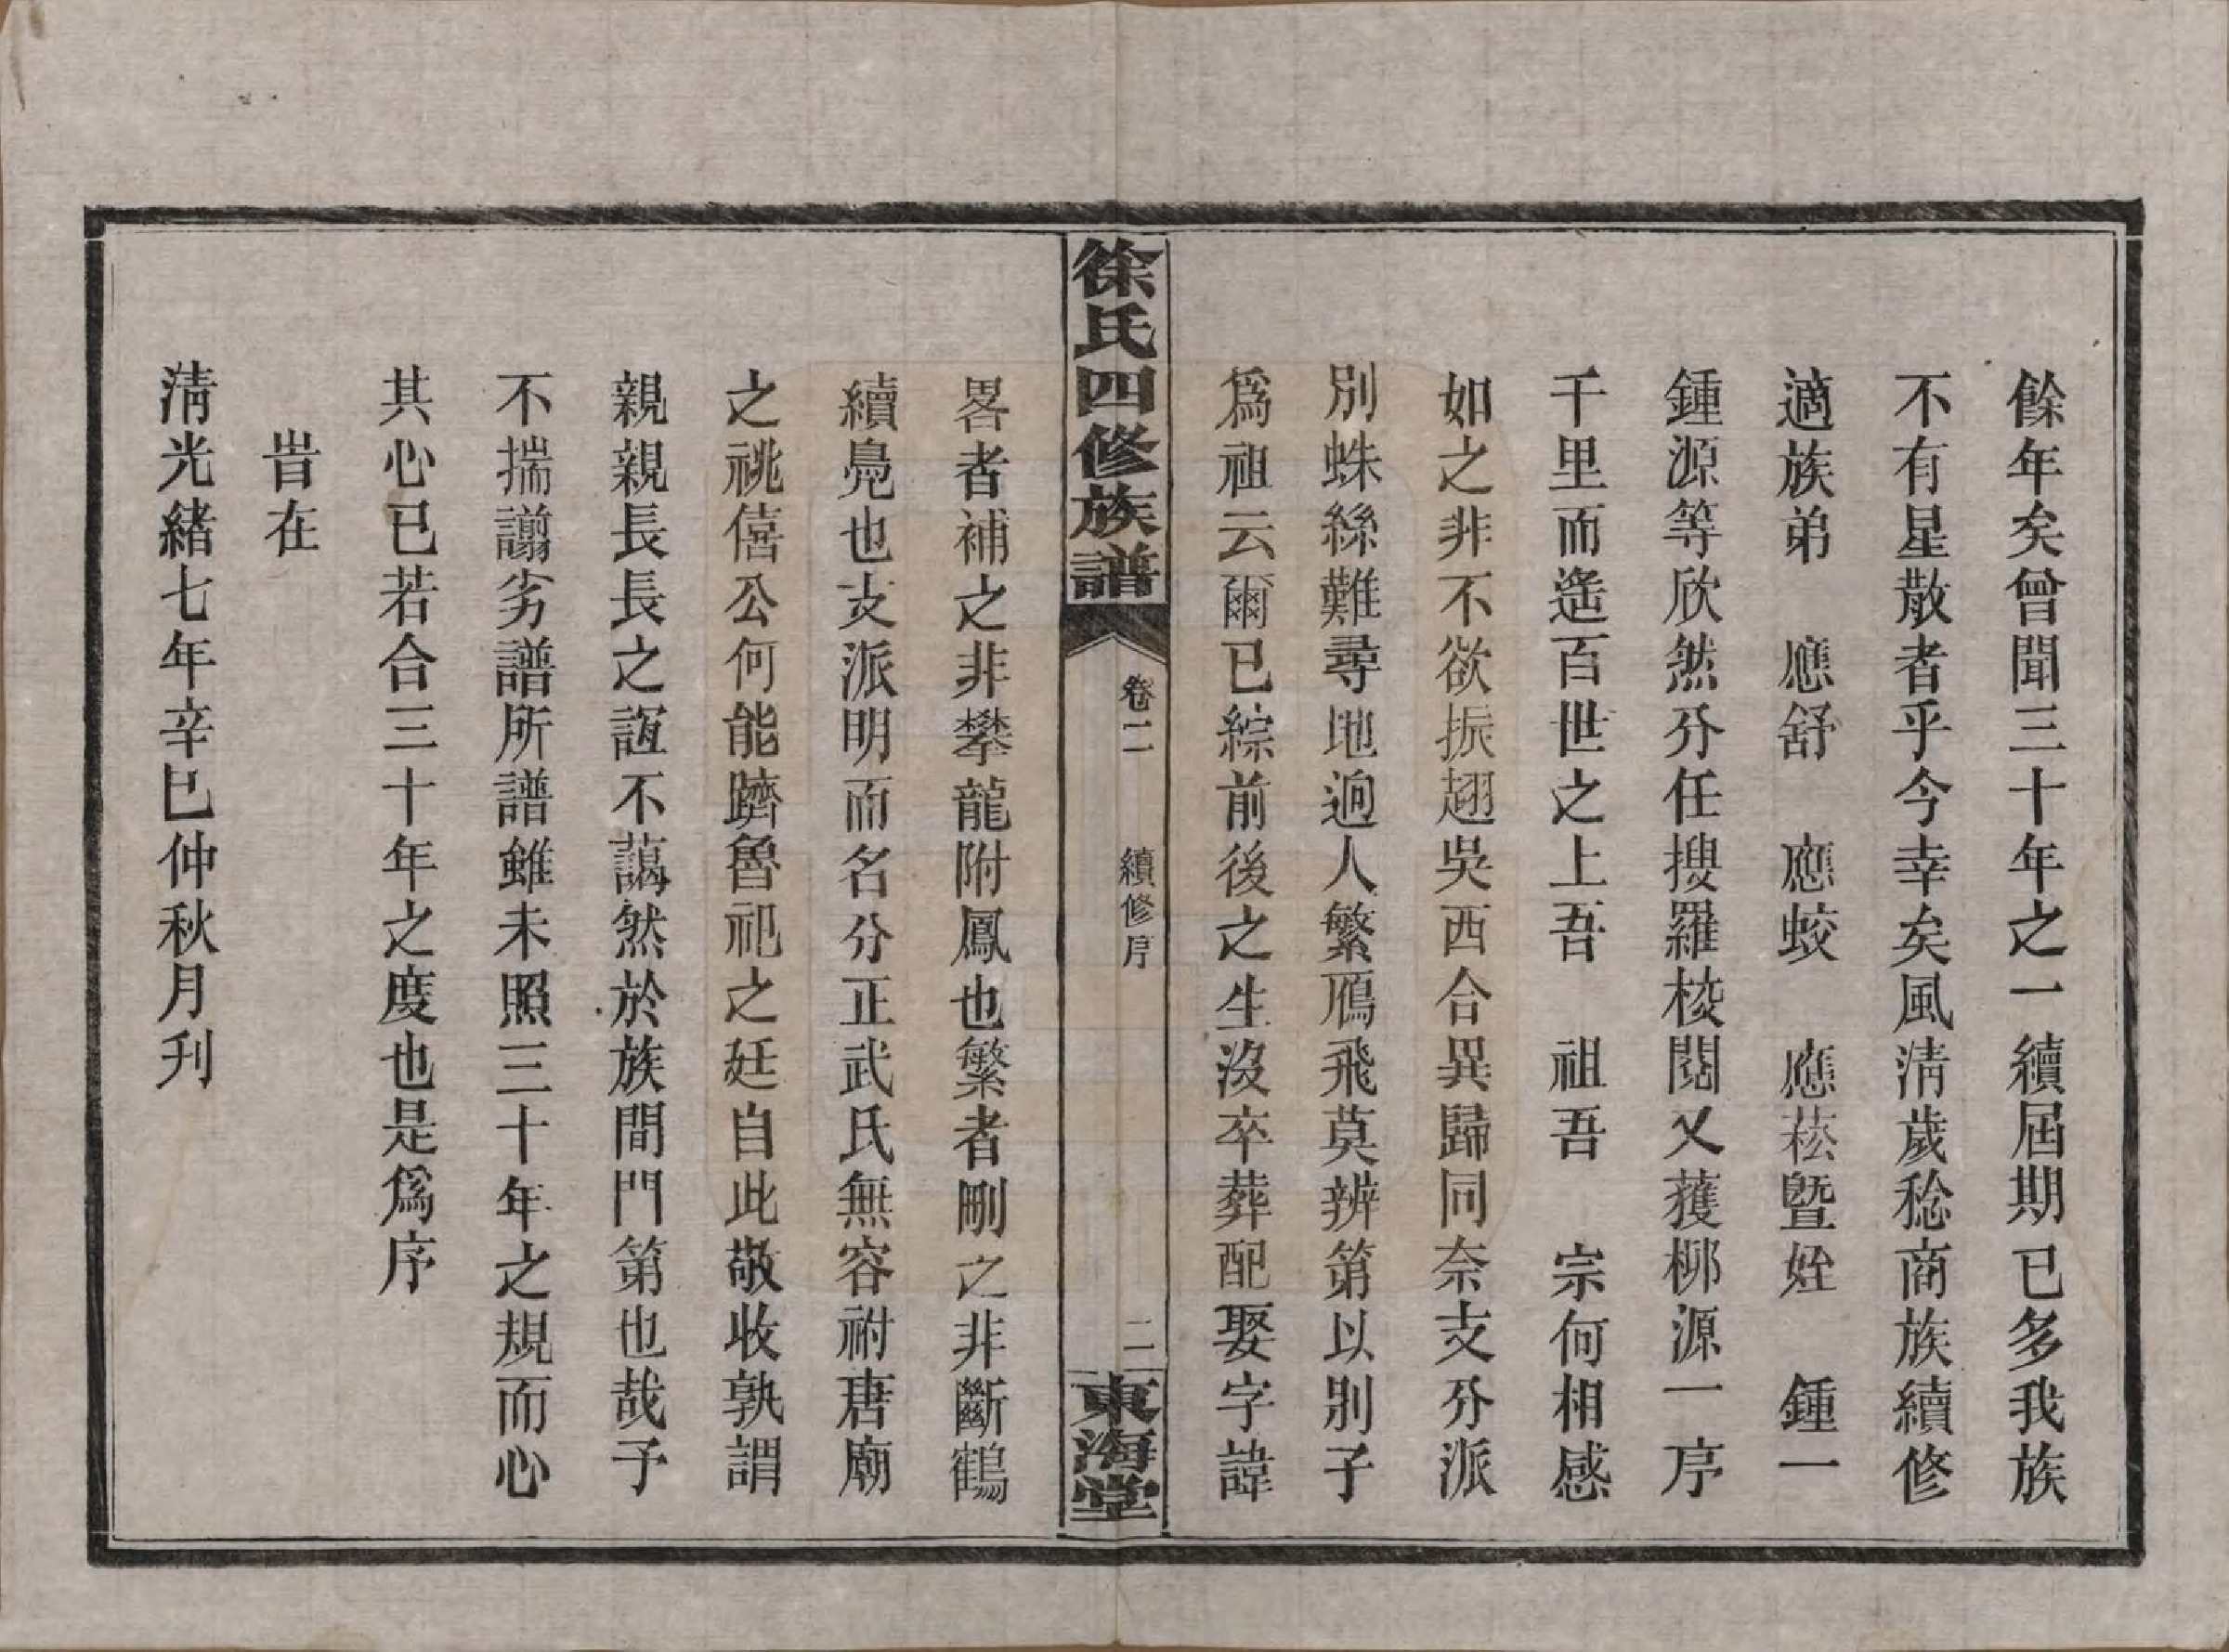 餘年矣曾聞三十年之一續屆期已多我族
不有星散者乎今幸矣風淸歲稔商族續修
適族弟　應舒　應蛟　應菘曁姪　鍾一
鍾源等欣然分任搜羅校閱又獲柳源一序
千里而遙百世之上吾　祖吾　宗何相感
如之非不欲振翅吳西合異歸同奈支分派
別蛛絲難尋地逈人繁鴈飛莫辨第以別子
爲祖云爾已綜前後之生沒卒葬配娶字諱
徐氏四修族譜
卷二
續修序
二
東海堂
畧者補之非攀龍附鳳也繁者刪之非斷鶴
續鳧也支派明而名分正武氏無容祔唐廟
之祧僖公何能躋魯祀之廷自此敬收孰謂
親親長長之誼不藹然於族間門第也哉予
不揣譾劣譜所譜雖未照三十年之規而心
其心已若合三十年之度也是爲序
旹在
淸光緖七年辛巳仲秋月刋